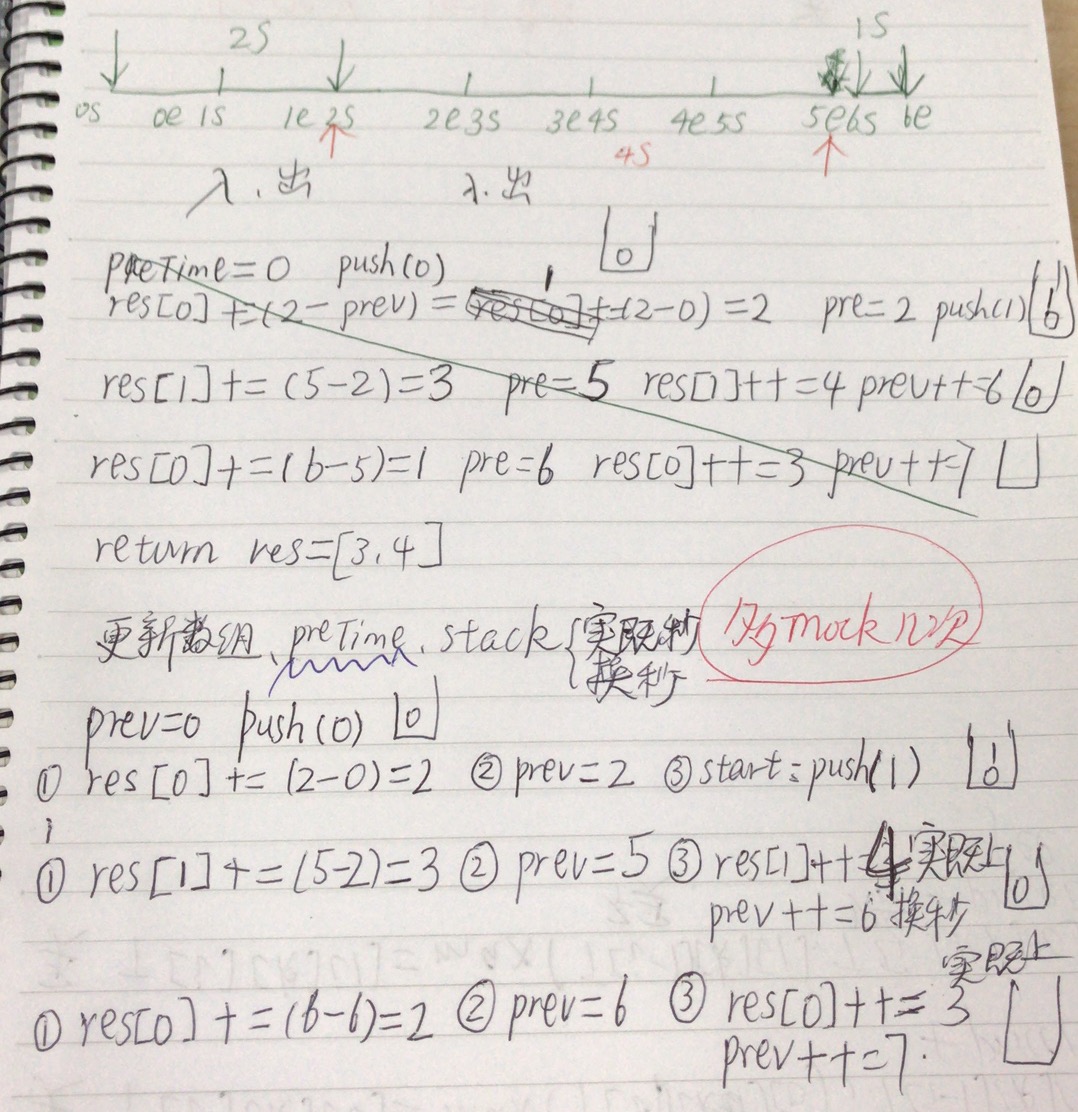 2S 1S
0s 0e 1s 1e 2s 2e3s 3e4s 4e5s 5e6s 6e
4S
入.出 入.出
0
preTime=0 push(0)
res[0] +=(2-prev) = res[0]+=(2-0)=2 pre=2 push(1) 1 0
res[1]+=(5-2)=3 pre=5 res[1]++=4 prev++=6 0
res[0]+=(6-5)=1 pre=6 res[0]++=3 prev++=7
return res=[3,4]
更新数组、preTime、stack{实际秒
换秒
多mock几次
prev=0 push(0) 0
① res[0]+=(2-0)=2 ② prev=2 ③ start:push(1) 1 0
① res[1]+=(5-2)=3 ② prev=5 ③ res[1]++=4 实际上 0
prev++=6 换秒
实际上
① res[0]+=(6-6)=2 ② prev=6 ③ res[0]++=3
prev++=7.